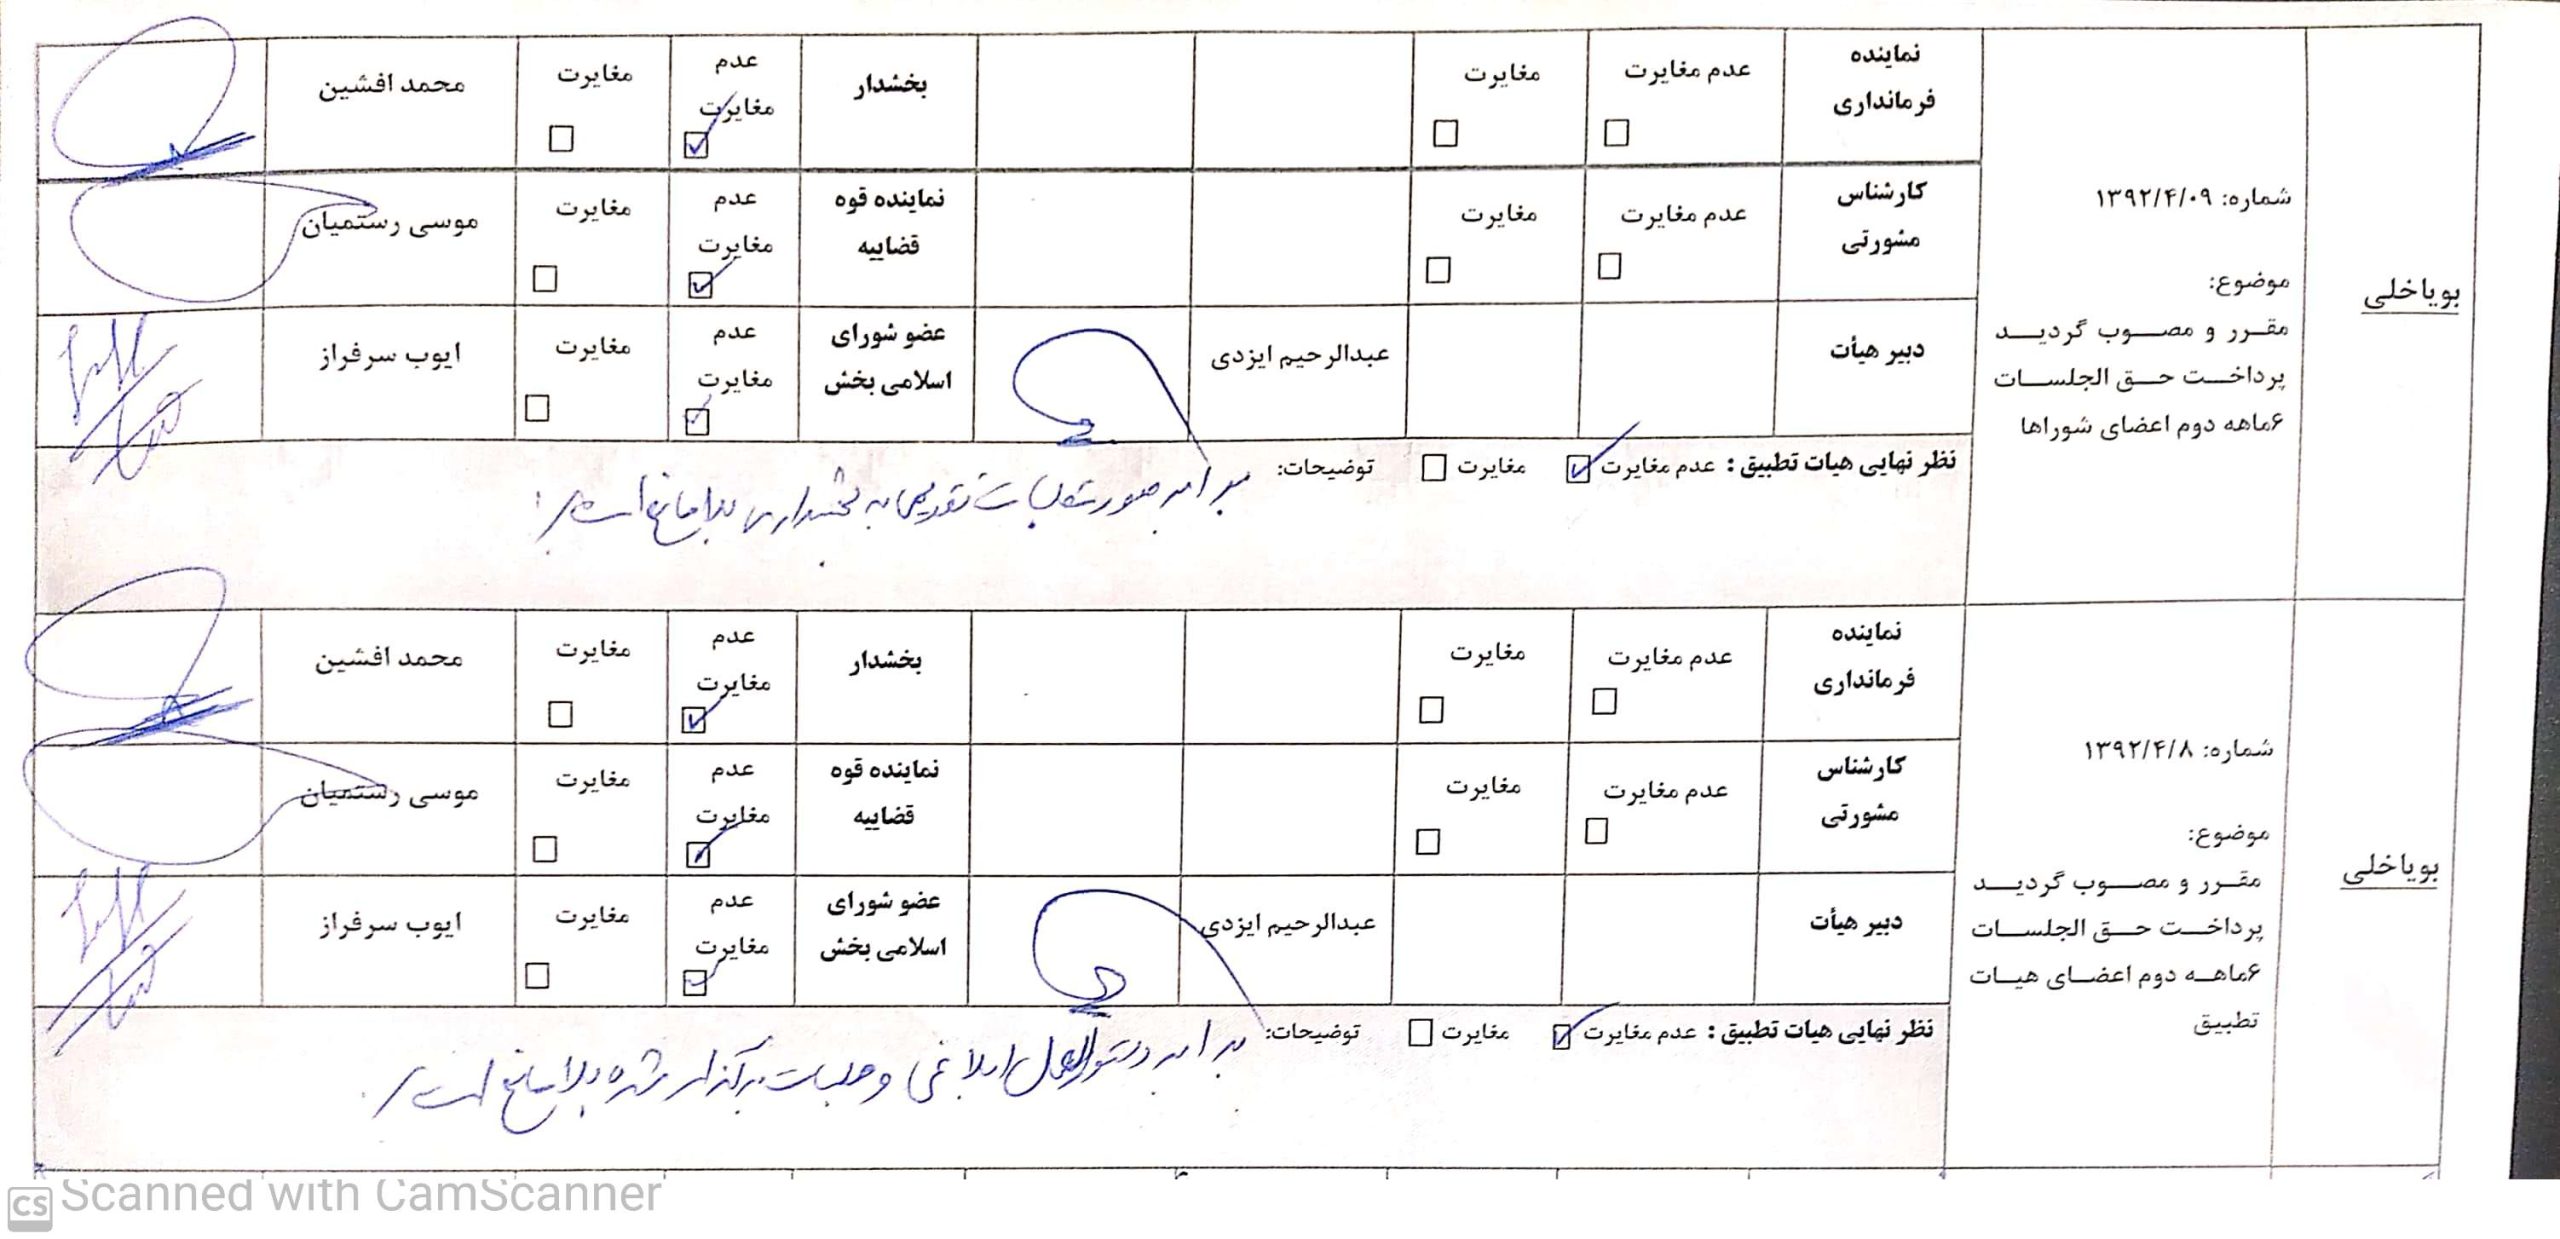 بویاخلی
شماره: ۱۳۹۲/۴/۰۹
موضوع:
مقرر و مصوب گردید
پرداخت حق الجلسات
۶ماهه دوم اعضای شوراها
نماینده فرمانداری
عدم مغایرت ☐
مغایرت ☐
بخشدار
عدم مغایرت ☑
مغایرت ☐
محمد افشین
کارشناس مشورتی
عدم مغایرت ☐
مغایرت ☐
نماینده قوه قضاییه
عدم مغایرت ☑
مغایرت ☐
موسی رستمیان
دبیر هیأت
عبدالرحیم ایزدی
عضو شورای اسلامی بخش
عدم مغایرت ☑
مغایرت ☐
ایوب سرفراز
نظر نهایی هیات تطبیق : عدم مغایرت ☑ مغایرت ☐ توضیحات:
برابر صورتجلسات تقدیمی به بخشداری بلامانع است
بویاخلی
شماره: ۱۳۹۲/۴/۸
موضوع:
مقرر و مصوب گردید
پرداخت حق الجلسات
۶ماهه دوم اعضای هیات
تطبیق
نماینده فرمانداری
عدم مغایرت ☐
مغایرت ☐
بخشدار
عدم مغایرت ☑
مغایرت ☐
محمد افشین
کارشناس مشورتی
عدم مغایرت ☐
مغایرت ☐
نماینده قوه قضاییه
عدم مغایرت ☑
مغایرت ☐
موسی رستمیان
دبیر هیأت
عبدالرحیم ایزدی
عضو شورای اسلامی بخش
عدم مغایرت ☑
مغایرت ☐
ایوب سرفراز
نظر نهایی هیات تطبیق : عدم مغایرت ☑ مغایرت ☐ توضیحات:
برابر دستورالعمل ابلاغی و جلسات برگزار شده بلامانع است
CS Scanned with CamScanner